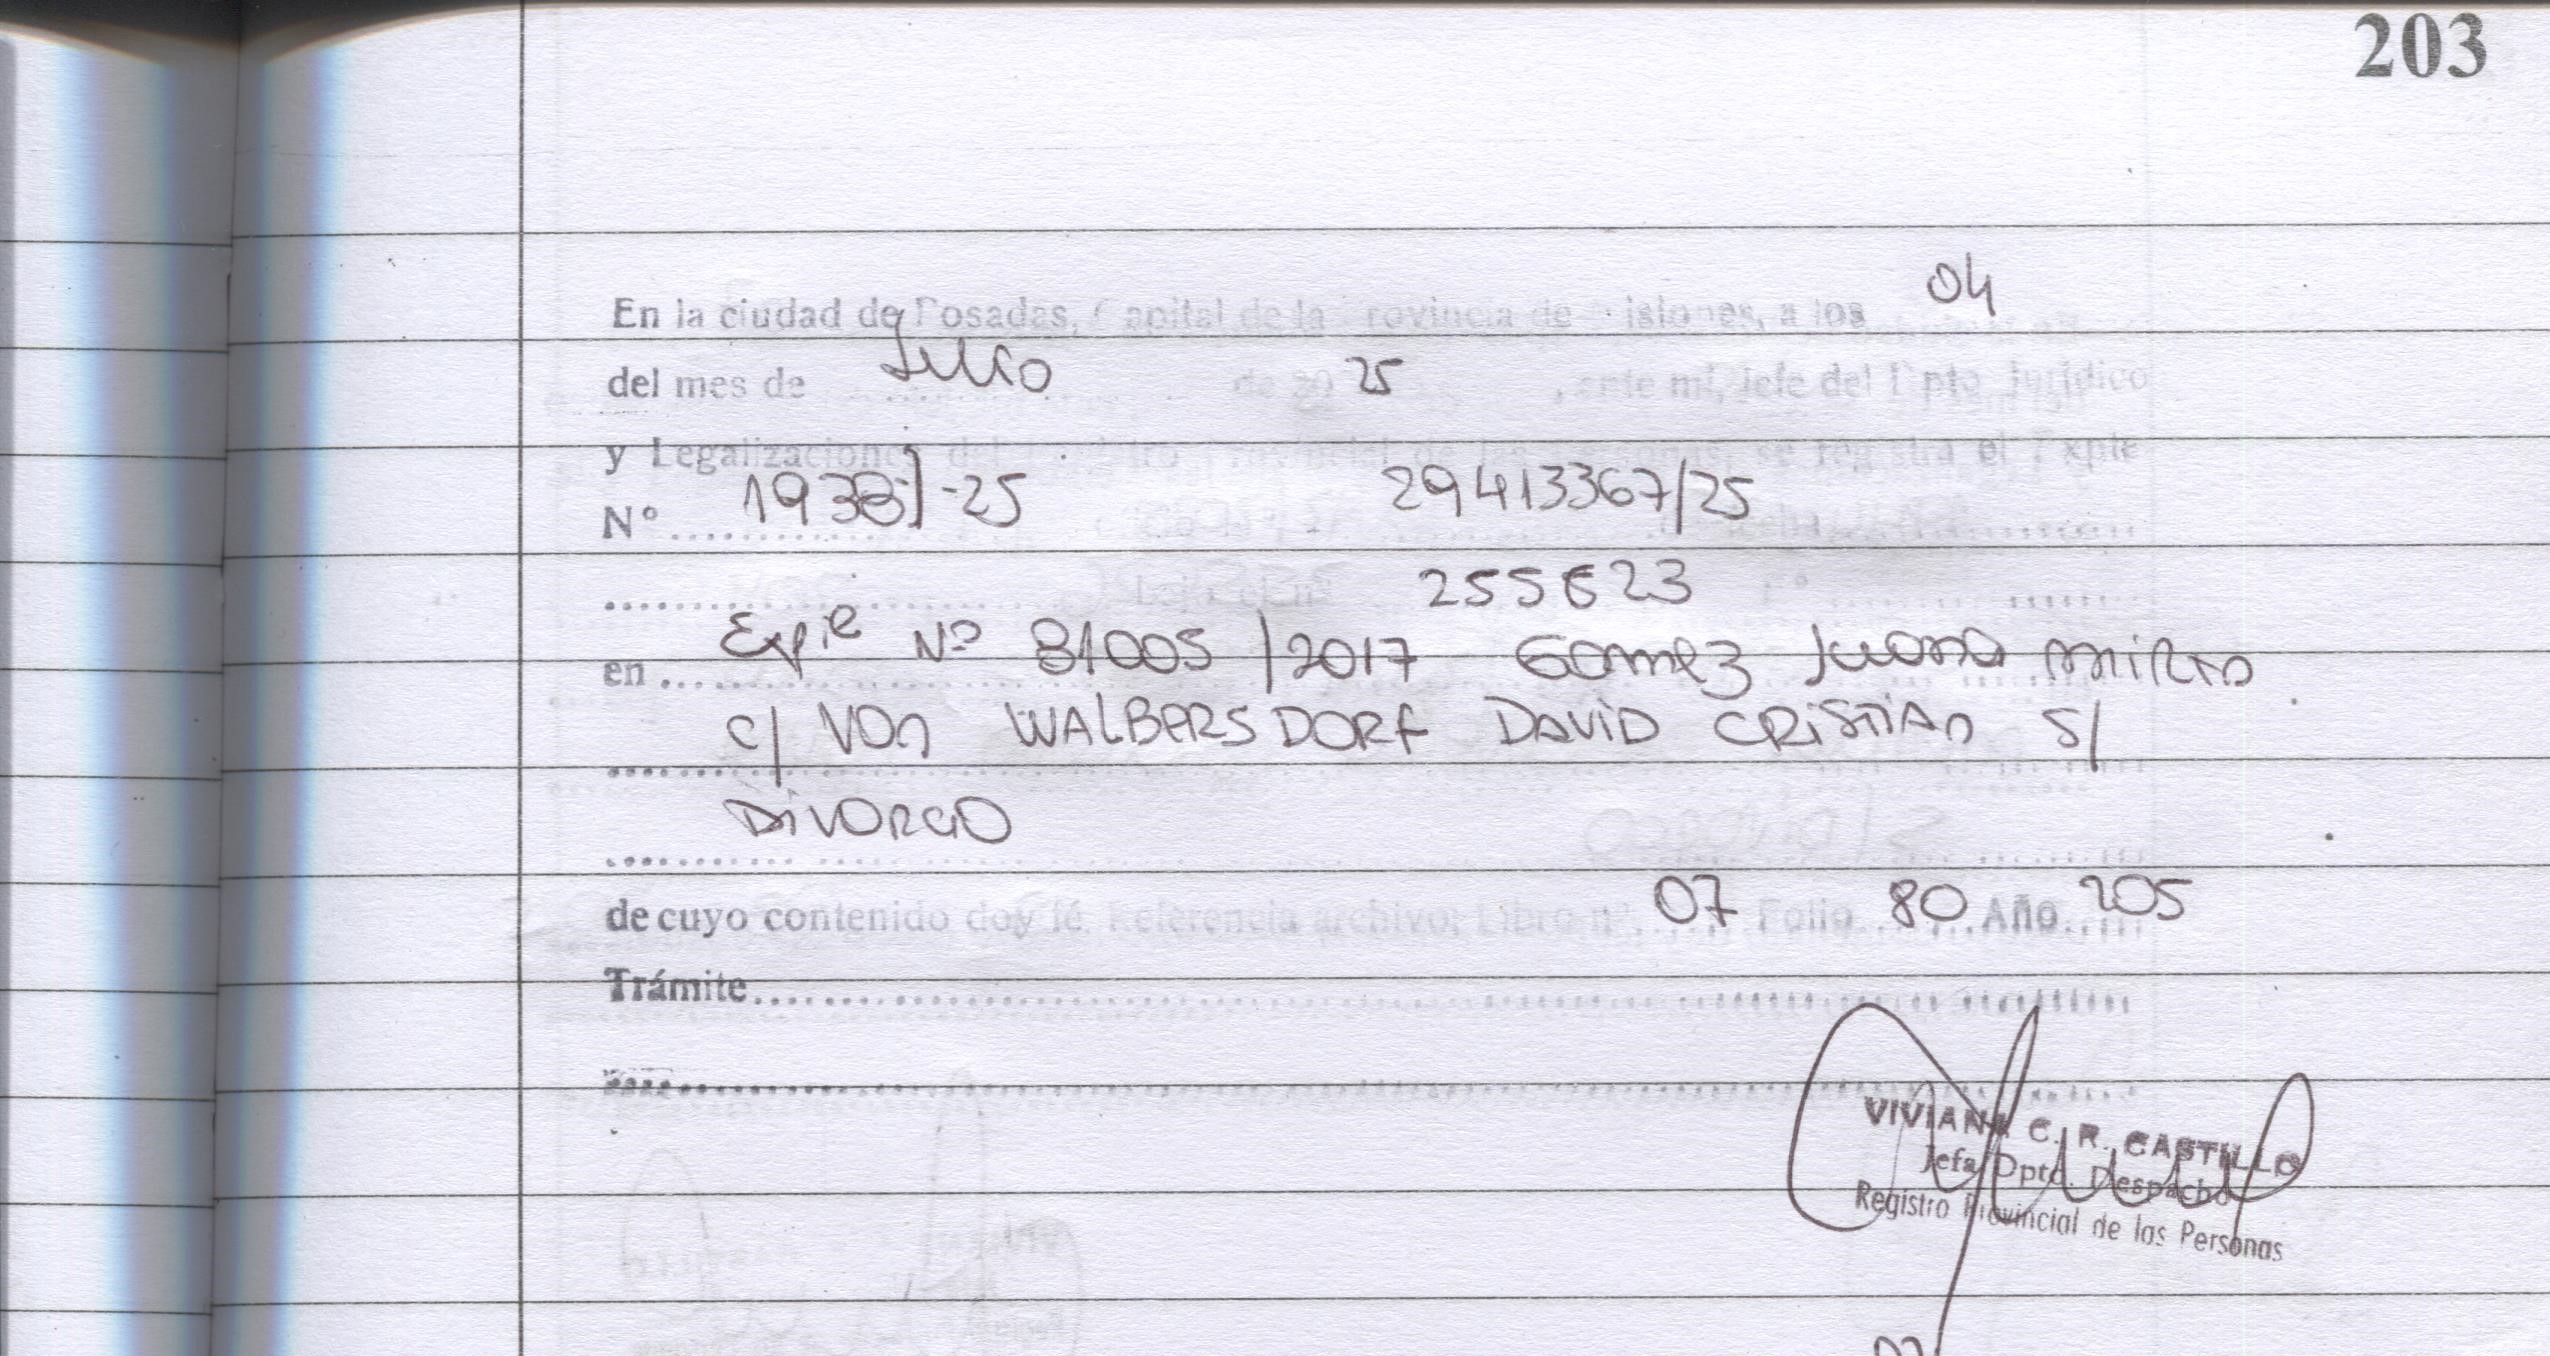 203
En la ciudad de Posadas, Capital de la Provincia de Misiones, a los 04
del mes de Julio de 20 25, ante mi, Jefe del Dpto Jurídico
y Legalizaciones del Registro Provincial de las Personas, se registra el Expte
Nº 1938 -25 29413367/25
255623
en Expte Nº 81005/2017 Gomez Juana
c/ VON WALBERSDORF DAVID CRISTIAN S/
DIVORCIO
de cuyo contenido doy fé. Referencia archivo: Libro nº 07 Folio 80 Año 205
Trámite
VIVIANA C. R. CASTILLO
Jefa Dpto. Despacho
Registro Provincial de las Personas